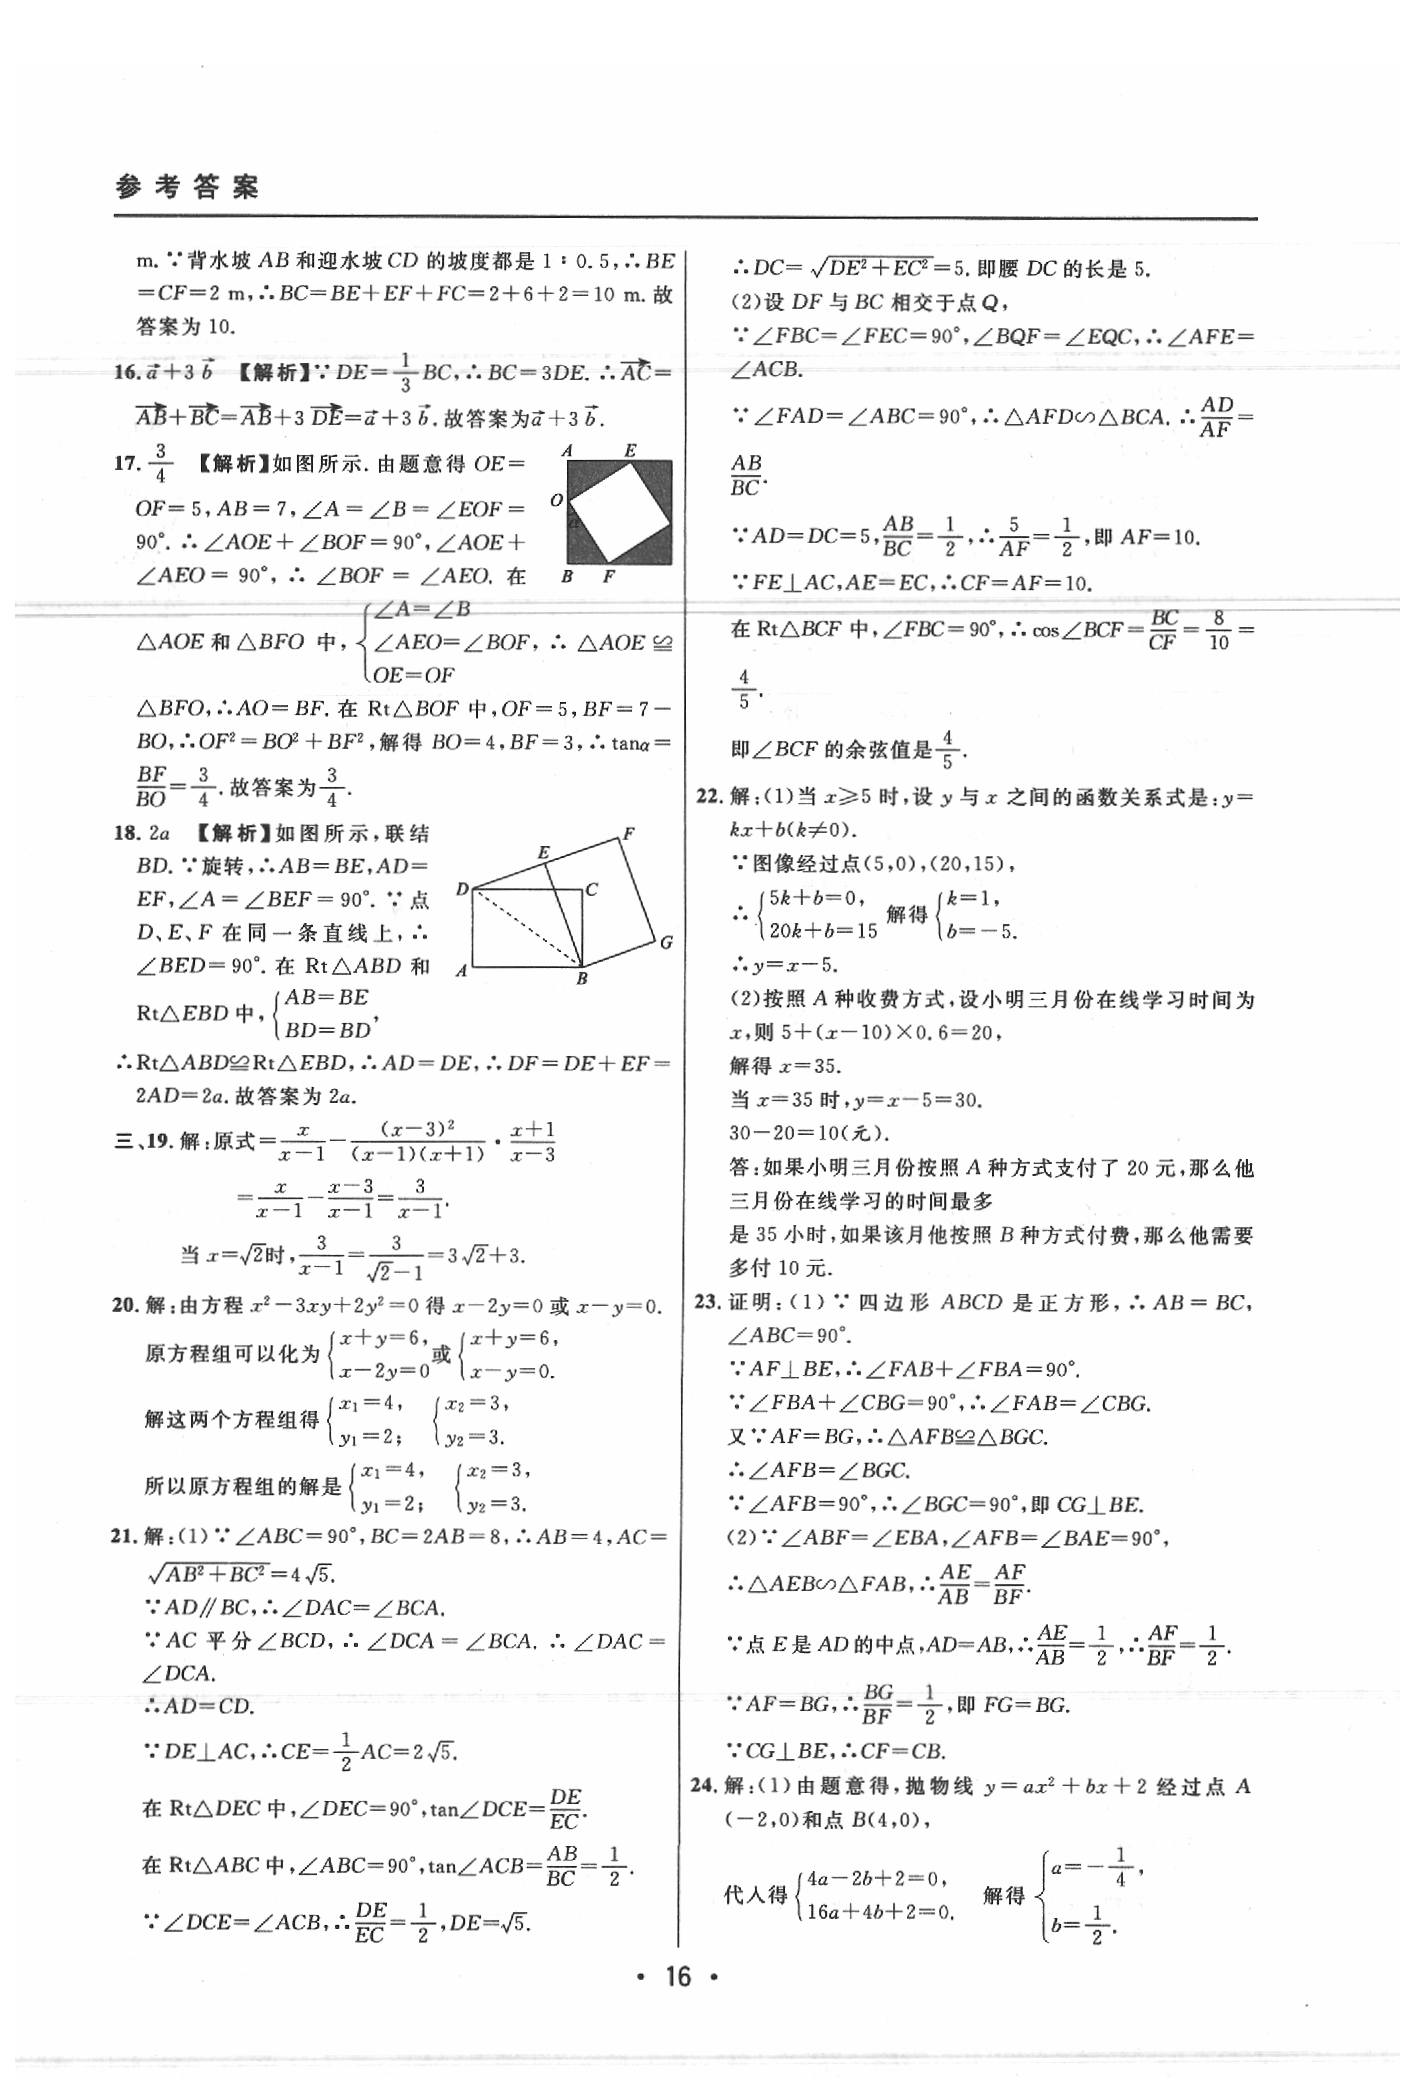 参考答案
m. ∵背水坡 AB 和迎水坡CD 的坡度都是 1∶0.5,∴BE
=CF=2 m,∴BC=BE+EF+FC=2+6+2=10 m. 故
答案为 10.
16. a⃗+3b⃗ 【解析】∵DE=1/3 BC,∴BC=3DE. ∴AC⃗=
AB⃗+BC⃗=AB⃗+3DE⃗=a⃗+3b⃗. 故答案为a⃗+3b⃗.
17. 3/4 【解析】如图所示. 由题意得 OE=
OF=5,AB=7,∠A=∠B=∠EOF=
90°. ∴∠AOE+∠BOF=90°,∠AOE+
∠AEO=90°,∴∠BOF=∠AEO. 在
△AOE 和△BFO 中,{∠A=∠B
∠AEO=∠BOF,∴△AOE≌
OE=OF
△BFO,∴AO=BF. 在 Rt△BOF 中,OF=5,BF=7-
BO,∴OF²=BO²+BF²,解得 BO=4,BF=3,∴tanα=
BF/BO=3/4. 故答案为3/4.
A E
O
α
B F
18. 2a 【解析】如图所示,联结
BD. ∵旋转,∴AB=BE,AD=
EF,∠A=∠BEF=90°. ∵点
D、E、F 在同一条直线上,∴
∠BED=90°. 在 Rt△ABD 和
Rt△EBD 中,{AB=BE
BD=BD,
∴Rt△ABD≌Rt△EBD,∴AD=DE,∴DF=DE+EF=
2AD=2a. 故答案为 2a.
F
E
D C
G
A B
三、19. 解:原式=x/(x-1)-(x-3)²/((x-1)(x+1))·(x+1)/(x-3)
=x/(x-1)-(x-3)/(x-1)=3/(x-1).
当 x=√2时,3/(x-1)=3/(√2-1)=3√2+3.
20. 解:由方程 x²-3xy+2y²=0 得 x-2y=0 或 x-y=0.
原方程组可以化为{x+y=6, x-2y=0 或{x+y=6, x-y=0.
解这两个方程组得{x₁=4, y₁=2; {x₂=3, y₂=3.
所以原方程组的解是{x₁=4, y₁=2; {x₂=3, y₂=3.
21. 解:(1)∵∠ABC=90°,BC=2AB=8,∴AB=4,AC=
√(AB²+BC²)=4√5.
∵AD∥BC,∴∠DAC=∠BCA.
∵AC 平分∠BCD,∴∠DCA=∠BCA. ∴∠DAC=
∠DCA.
∴AD=CD.
∵DE⊥AC,∴CE=1/2 AC=2√5.
在 Rt△DEC 中,∠DEC=90°,tan∠DCE=DE/EC.
在 Rt△ABC 中,∠ABC=90°,tan∠ACB=AB/BC=1/2.
∵∠DCE=∠ACB,∴DE/EC=1/2,DE=√5.
∴DC=√(DE²+EC²)=5. 即腰 DC 的长是 5.
(2)设 DF 与 BC 相交于点Q,
∵∠FBC=∠FEC=90°,∠BQF=∠EQC,∴∠AFE=
∠ACB.
∵∠FAD=∠ABC=90°,∴△AFD∽△BCA. ∴AD/AF=
AB/BC.
∵AD=DC=5,AB/BC=1/2,∴5/AF=1/2,即 AF=10.
∵FE⊥AC,AE=EC,∴CF=AF=10.
在 Rt△BCF 中,∠FBC=90°,∴cos∠BCF=BC/CF=8/10=
4/5.
即∠BCF 的余弦值是4/5.
22. 解:(1)当 x≥5 时,设 y 与 x 之间的函数关系式是:y=
kx+b(k≠0).
∵图像经过点(5,0),(20,15),
∴{5k+b=0, 20k+b=15 解得{k=1, b=-5.
∴y=x-5.
(2)按照 A 种收费方式,设小明三月份在线学习时间为
x,则 5+(x-10)×0.6=20,
解得 x=35.
当 x=35 时,y=x-5=30.
30-20=10(元).
答:如果小明三月份按照 A 种方式支付了 20 元,那么他
三月份在线学习的时间最多
是 35 小时,如果该月他按照 B 种方式付费,那么他需要
多付 10 元.
23. 证明:(1)∵四边形 ABCD 是正方形,∴AB=BC,
∠ABC=90°.
∵AF⊥BE,∴∠FAB+∠FBA=90°.
∵∠FBA+∠CBG=90°,∴∠FAB=∠CBG.
又∵AF=BG,∴△AFB≌△BGC.
∴∠AFB=∠BGC.
∵∠AFB=90°,∴∠BGC=90°,即 CG⊥BE.
(2)∵∠ABF=∠EBA,∠AFB=∠BAE=90°,
∴△AEB∽△FAB,∴AE/AB=AF/BF.
∵点 E 是 AD 的中点,AD=AB,∴AE/AB=1/2,∴AF/BF=1/2.
∵AF=BG,∴BG/BF=1/2,即 FG=BG.
∵CG⊥BE,∴CF=CB.
24. 解:(1)由题意得,抛物线 y=ax²+bx+2 经过点 A
(-2,0)和点 B(4,0),
代入得{4a-2b+2=0, 16a+4b+2=0. 解得{a=-1/4, b=1/2.
• 16 •